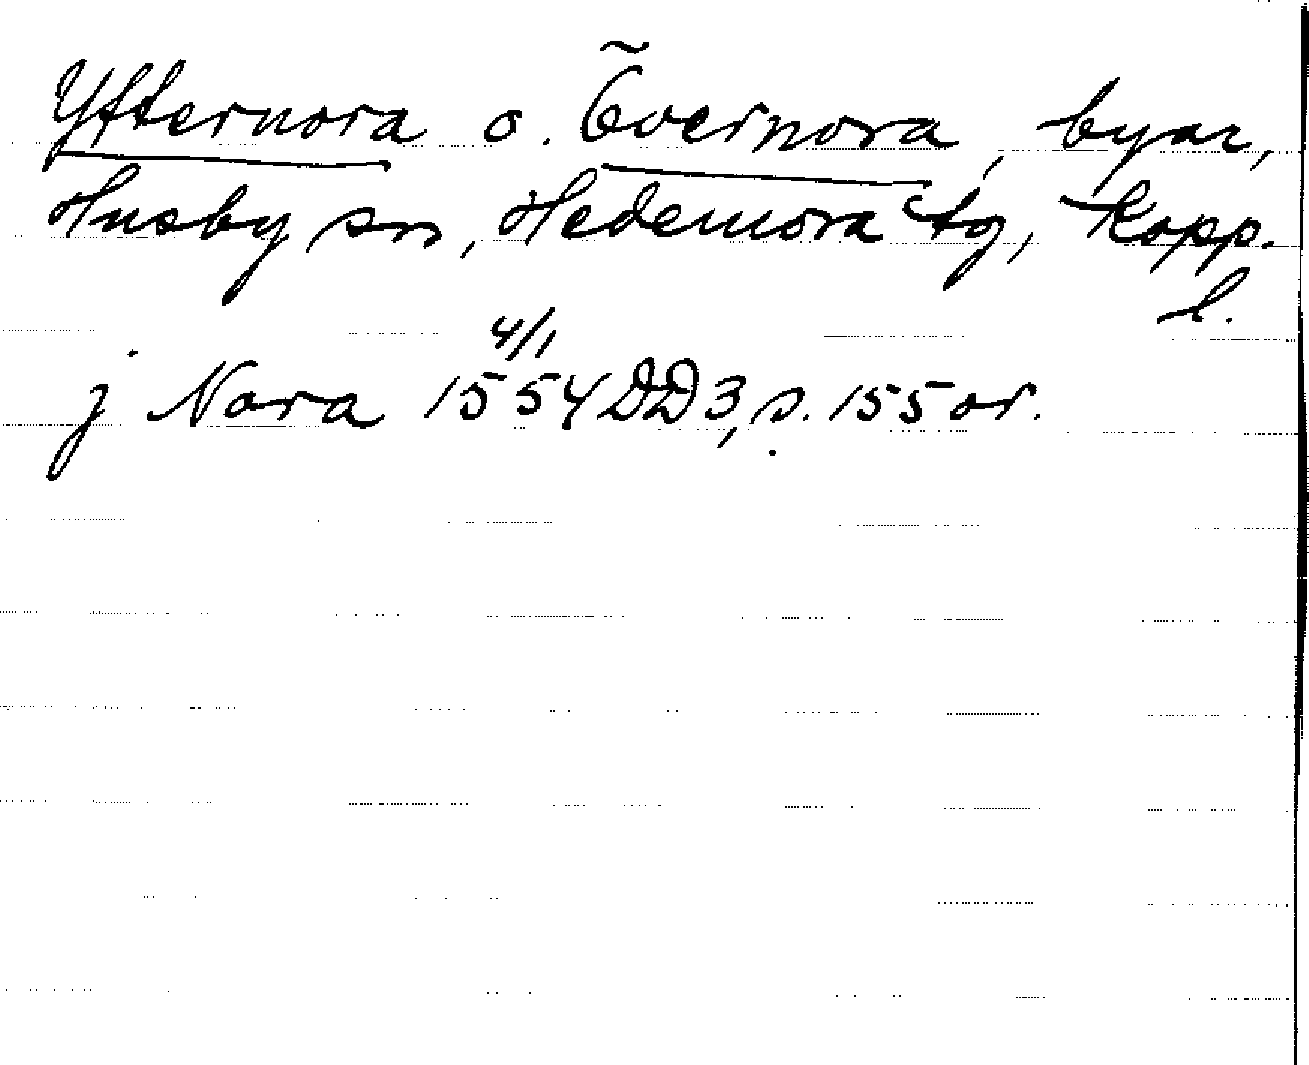 Yfternora o. Övernora, byar,
Husby sn, Hedemora tg, Kopp.
l.
4/1
j Nora 1554 DD 3, s. 155 or.